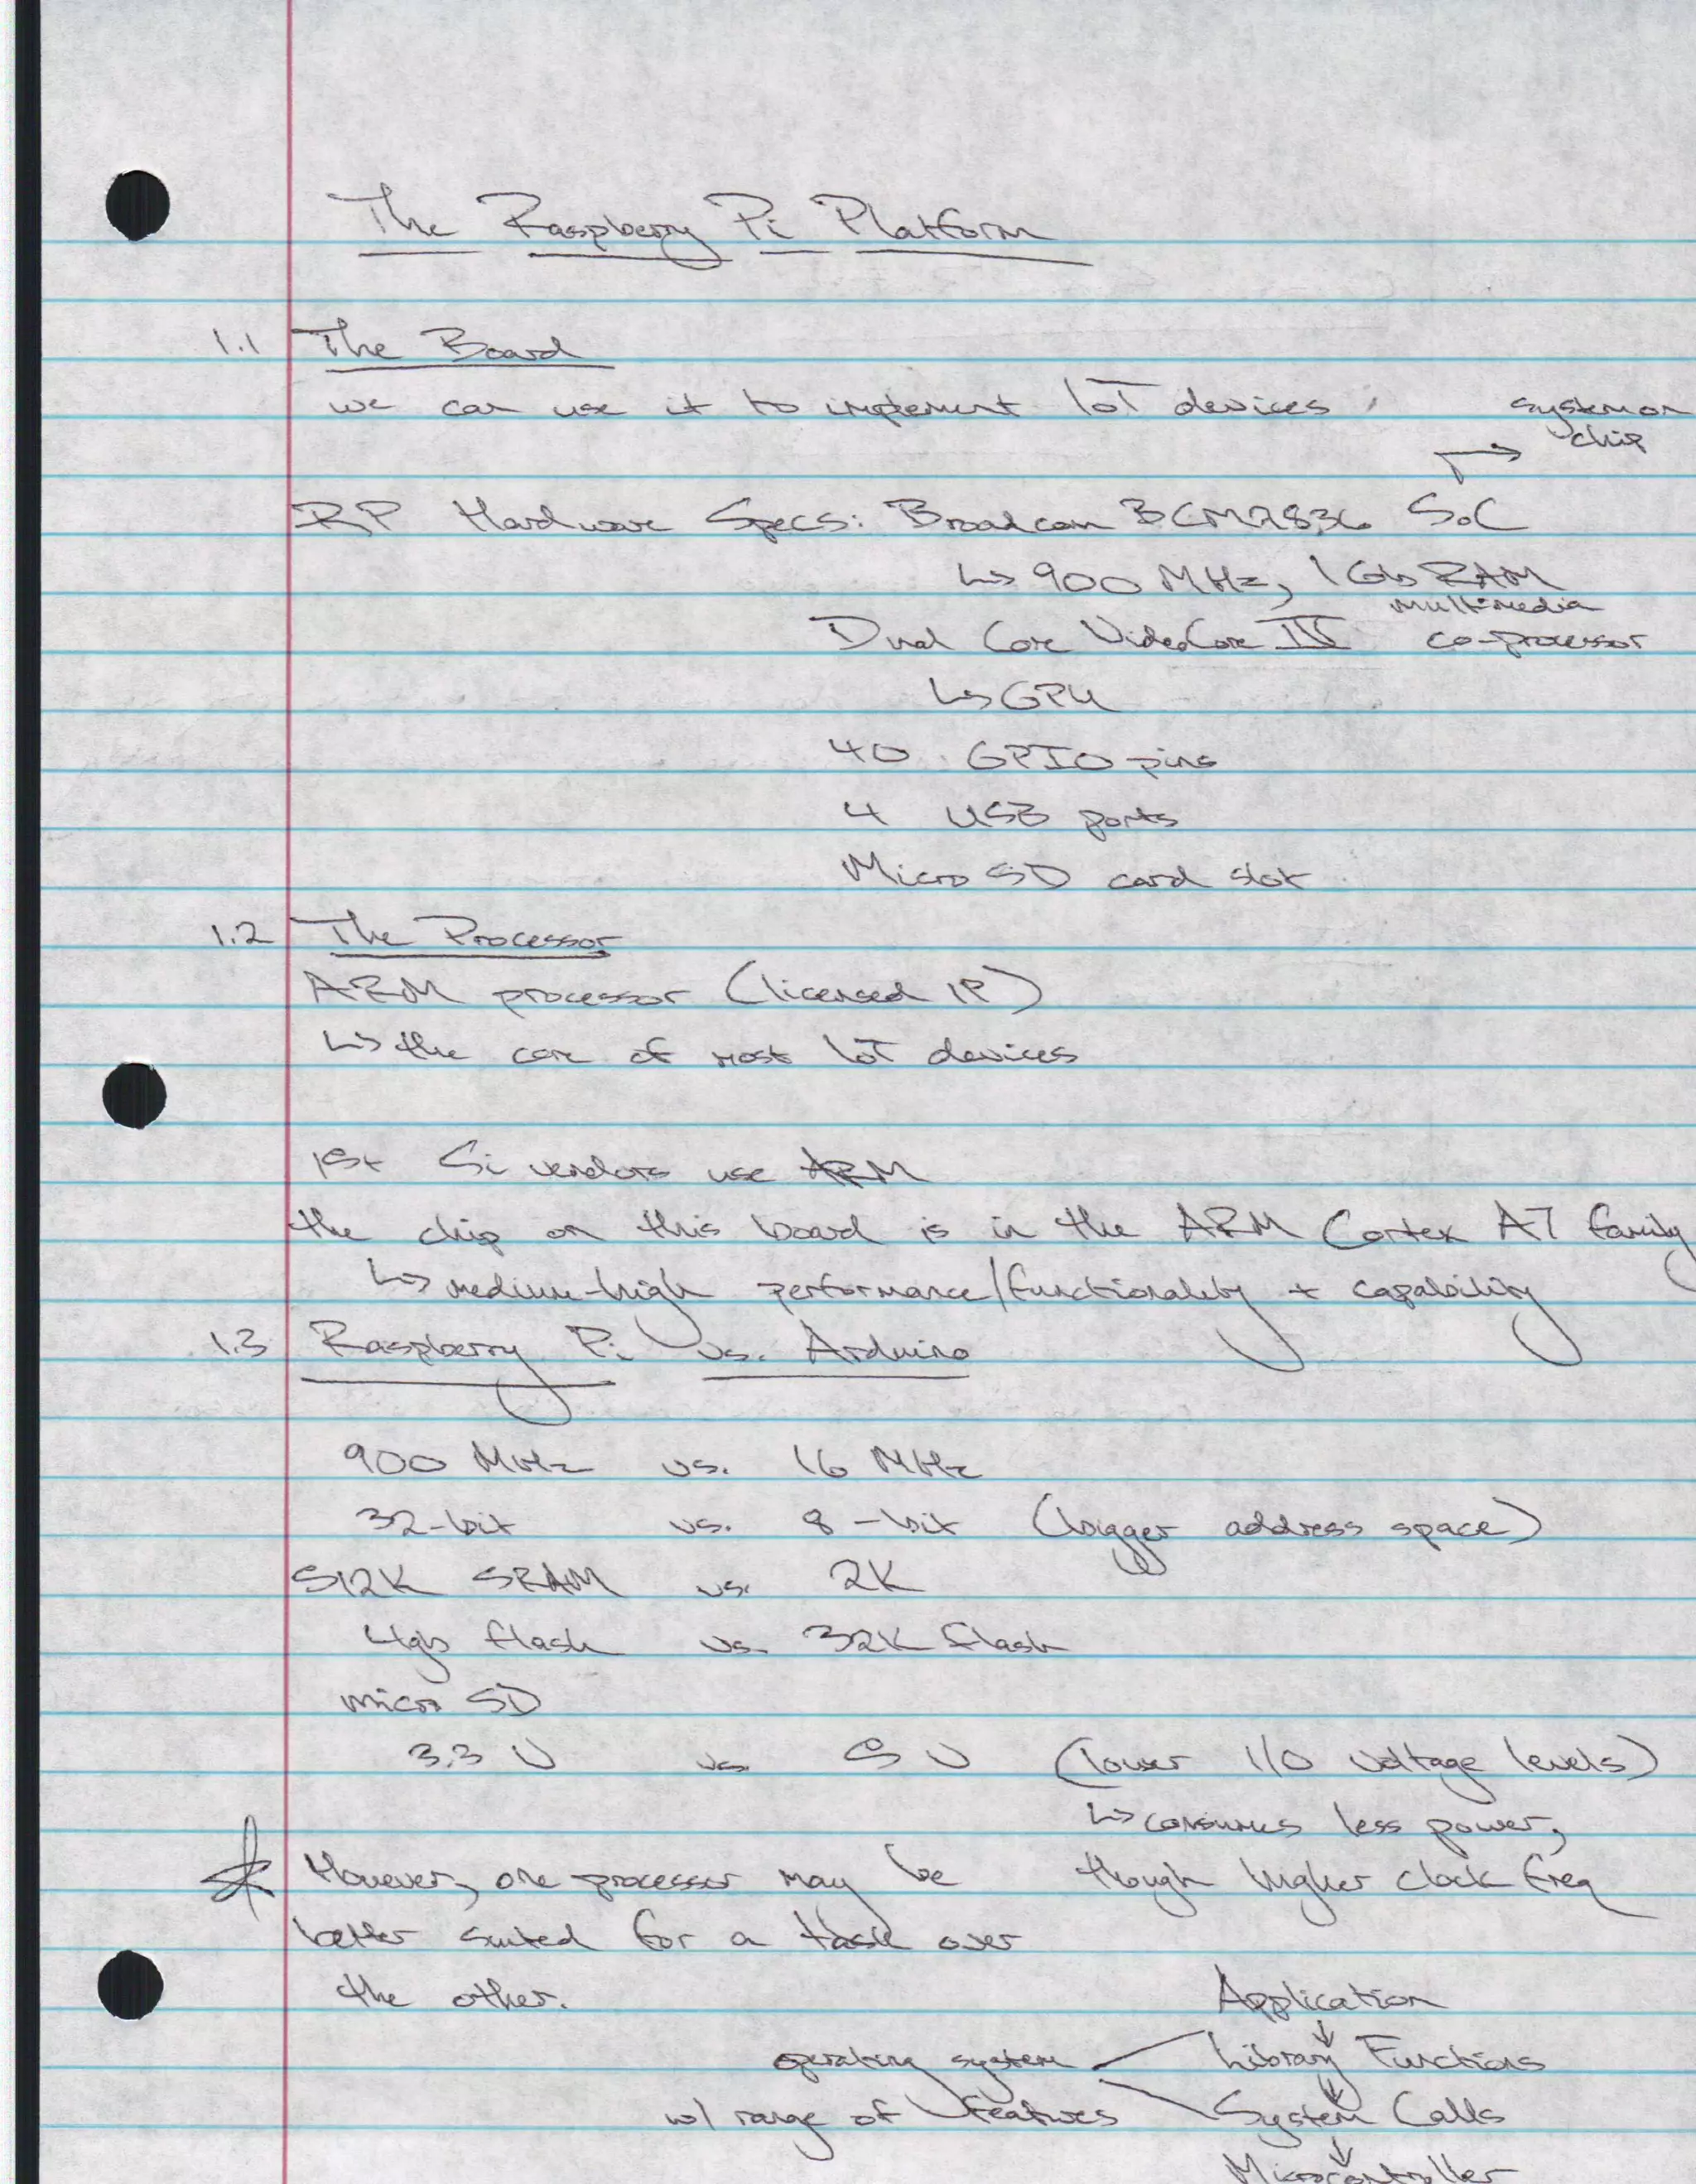 The Raspberry Pi Platform
1.1 The Board
we can use it to implement IoT devices
system on
chip
RP Hardware Specs: Broadcom BCM2836 SoC
↳ 900 MHz, 1Gb RAM
Dual Core VideoCore IV multimedia
co-processor
↳ GPU
40 GPIO pins
4 USB ports
Micro SD card slot
1.2 The Processor
ARM processor (licensed IP)
↳ the core of most IoT devices
Si vendors use ARM
the chip on this board is in the ARM Cortex A7 family
↳ medium-high performance/functionality + capability
1.3 Raspberry Pi vs. Arduino
900 MHz vs. 16 MHz
32-bit vs. 8-bit (bigger address space)
512K SRAM vs. 2K
4gb flash vs. 32K flash
micro SD
3.3 V vs. 5 V (lower I/O voltage levels)
↳ consumes less power,
though higher clock freq
However, one processor may be
better suited for a task over
the other.
Application
↓
operating system Library Functions
↓
w/ range of features System Calls
↓
Microcontroller